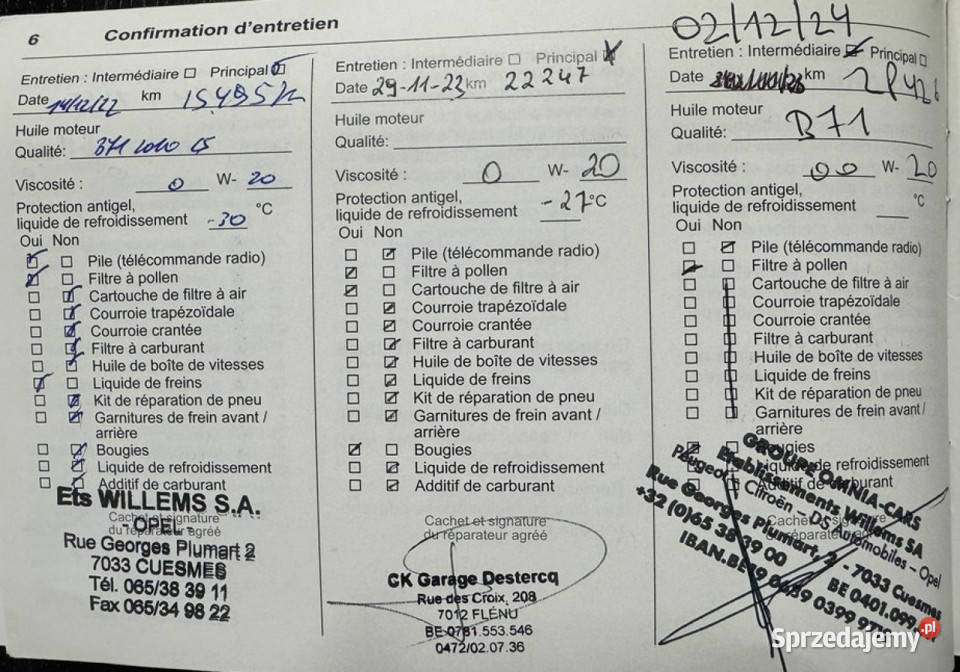 6 Confirmation d'entretien
Entretien : Intermédiaire Principal
Date 14/12/22 km
Huile moteur
Qualité: B71
Viscosité : 0 W- 20
Protection antigel,
liquide de refroidissement -30 °C
Oui Non
Pile (télécommande radio)
Filtre à pollen
Cartouche de filtre à air
Courroie trapézoïdale
Courroie crantée
Filtre à carburant
Huile de boîte de vitesses
Liquide de freins
Kit de réparation de pneu
Garnitures de frein avant /
arrière
Bougies
Liquide de refroidissement
Additif de carburant
Cachet et signature
du réparateur agréé
Ets WILLEMS S.A.
- OPEL -
Rue Georges Plumart 2
7033 CUESMES
Tél. 065/38 39 11
Fax 065/34 98 22
Entretien : Intermédiaire Principal
Date 29-11-23 km 22247
Huile moteur
Qualité:
Viscosité : 0 W- 20
Protection antigel,
liquide de refroidissement -27°C
Oui Non
Pile (télécommande radio)
Filtre à pollen
Cartouche de filtre à air
Courroie trapézoïdale
Courroie crantée
Filtre à carburant
Huile de boîte de vitesses
Liquide de freins
Kit de réparation de pneu
Garnitures de frein avant /
arrière
Bougies
Liquide de refroidissement
Additif de carburant
Cachet et signature
du réparateur agréé
CK Garage Destercq
Rue des Croix, 208
7012 FLÉNU
BE 0781.553.546
0472/02.07.36
02/12/24
Entretien : Intermédiaire Principal
Date km
Huile moteur
Qualité: B71
Viscosité : 00 W- 20
Protection antigel,
liquide de refroidissement °C
Oui Non
Pile (télécommande radio)
Filtre à pollen
Cartouche de filtre à air
Courroie trapézoïdale
Courroie crantée
Filtre à carburant
Huile de boîte de vitesses
Liquide de freins
Kit de réparation de pneu
Garnitures de frein avant /
arrière
Bougies
Liquide de refroidissement
Additif de carburant
Cachet et
GROUPE OMNIA-CARS
Etablissements Willems SA
Peugeot - Citroën - DS Automobiles - Opel
Rue Georges Plumart, 2 - 7033 Cuesmes
+32 (0)65 38 39 00
BE 0401.099.
Sprzedajemy.pl